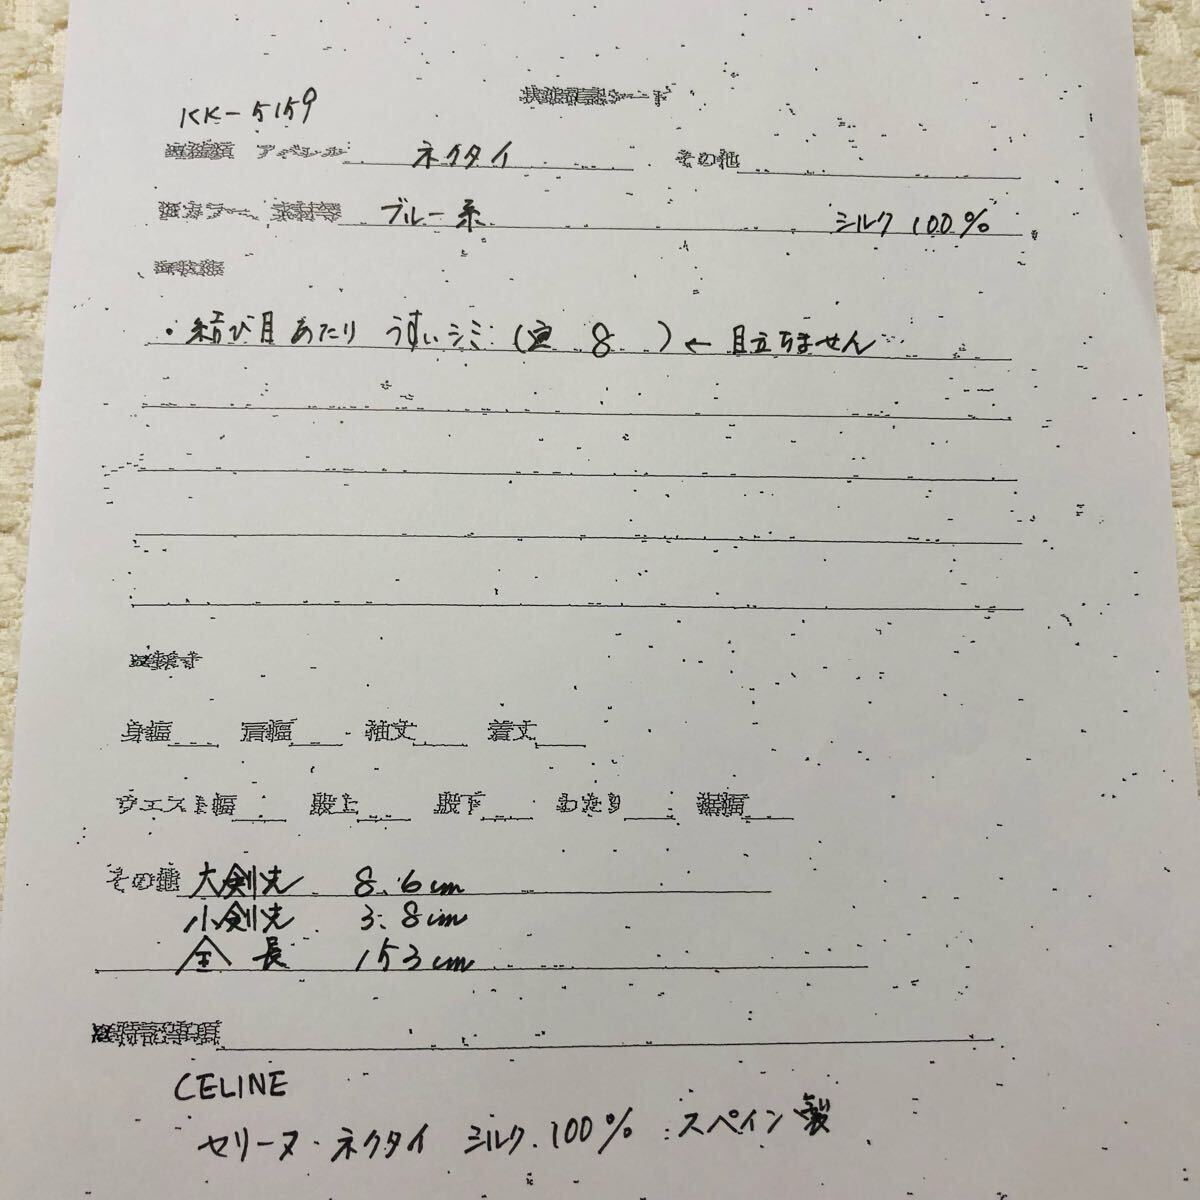 状態確認シート
KK-5159
アパレル ネクタイ その他
カラー 素材等 ブルー系 シルク 100%
状態
・結び目あたり うすいシミ (8) ← 目立ちません
採寸
身幅 肩幅 袖丈 着丈
ウエスト幅 股上 股下 わたり 裾幅
その他 大剣先 8.6cm
小剣先 3.8cm
全長 153cm
特記事項
CELINE
セリーヌ・ネクタイ シルク.100% スペイン製